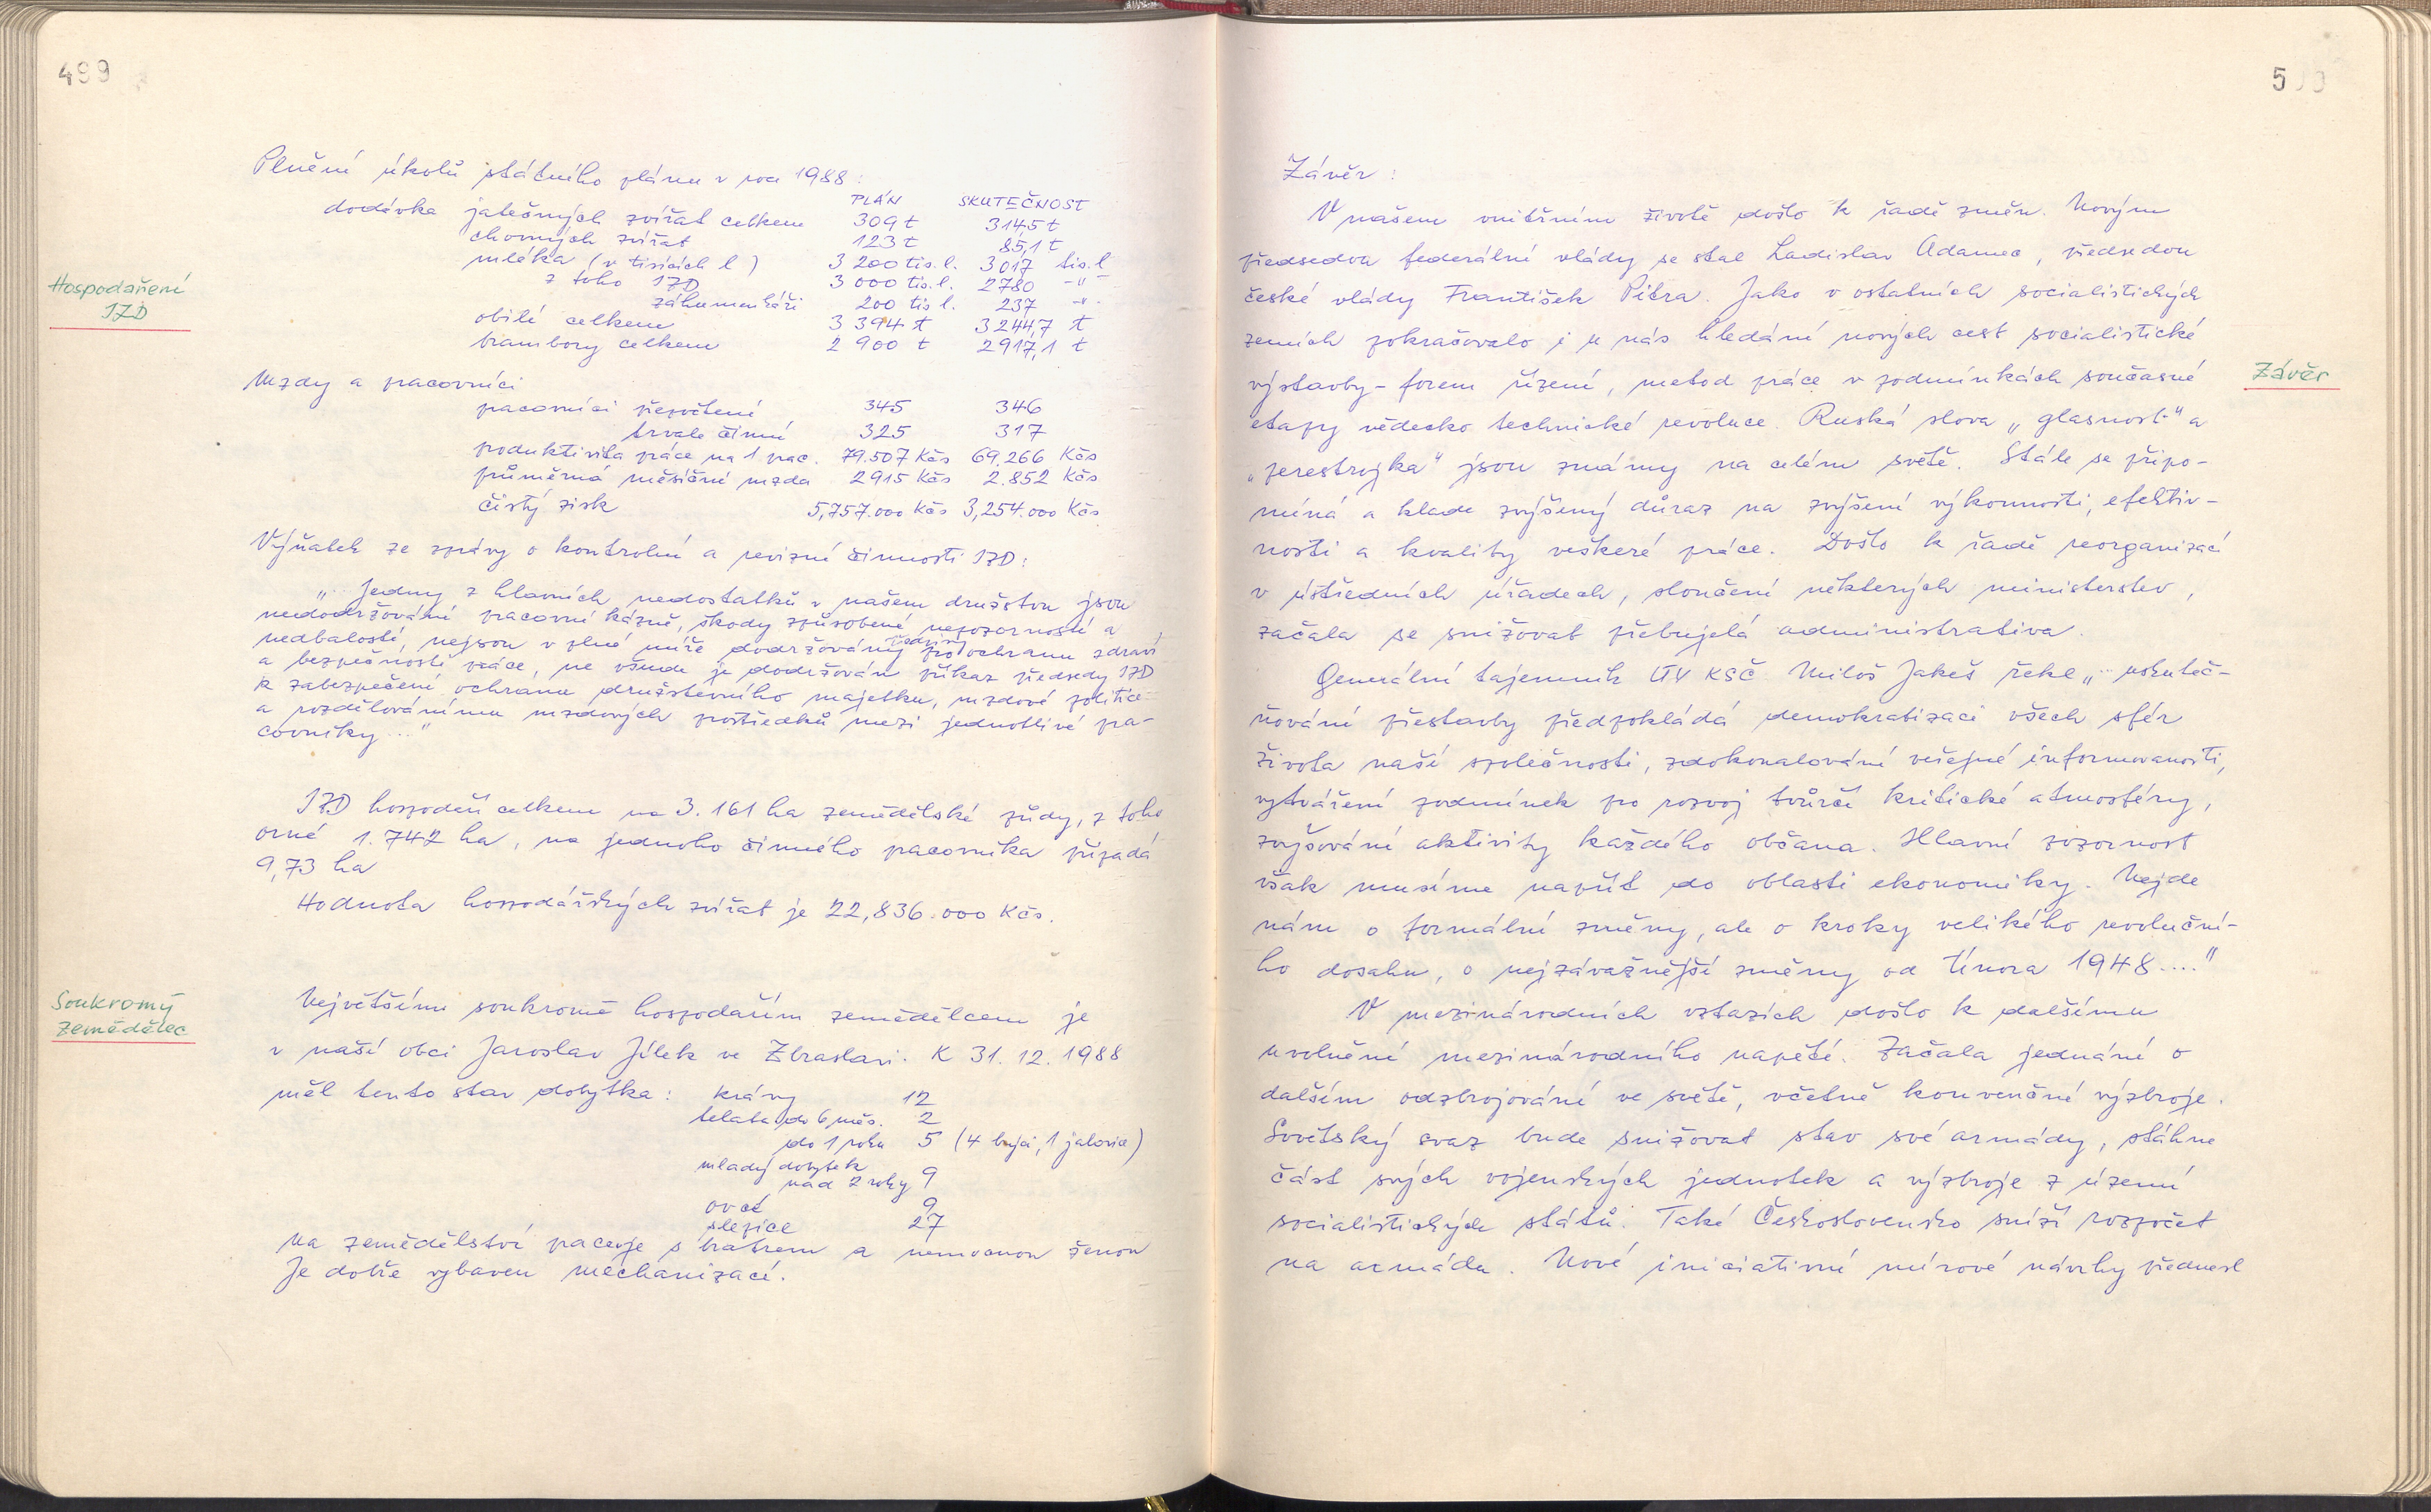 499
Plnění úkolů státního plánu v roce 1988:
PLÁN SKUTEČNOST
dodávka jatečných zvířat celkem 309 t 314,5 t
chovných zvířat 123 t 85,1 t
mléka (v tisících l) 3 200 tis. l. 3 017 tis. l
z toho JZD 3 000 tis. l. 2780 -"-
záhumenkáři 200 tis l. 237 -"-
obilí celkem 3 394 t 3244,7 t
brambory celkem 2 900 t 2917,1 t
Hospodaření
JZD
Mzdy a pracovníci
pracovníci přepočtení 345 346
trvale činní 325 317
produktivita práce na 1 prac. 79.507 Kčs 69.266 Kčs
průměrná měsíční mzda 2915 Kčs 2.852 Kčs
čistý zisk 5,757.000 Kčs 3,254.000 Kčs
Výňatek ze zprávy o kontrolní a revizní činnosti JZD:
"... Jedny z hlavních nedostatků v našem družstvu jsou
nedodržování pracovní kázně, škody způsobené nepozorností a
nedbalostí, nejsou v plné míře dodržovány předpisy pro ochranu zdraví
a bezpečnosti práce, ne všude je dodržován příkaz předsedy JZD
k zabezpečení ochrany družstevního majetku, mzdové politice
a rozdělovánímu mzdových prostředků mezi jednotlivé pra-
covníky..."
JZD hospodaří celkem na 3.161 ha zemědělské půdy, z toho
orné 1.742 ha, na jednoho činného pracovníka připadá
9,73 ha
Hodnota hospodářských zvířat je 22,836.000 Kčs.
Soukromý
Zemědělec
Největším soukromě hospodařím zemědělcem je
v naší obci Jaroslav Jílek ve Zbraslavi. K 31. 12. 1988
měl tento stav dobytka: krávy 12
telata do 6 měs. 2
do 1 roku 5 (4 býci, 1 jalovice)
mladý dobytek
nad 2 roky 9
ovce 9
slepice 27
Na zemědělství pacuje s bratrem a nemocnou ženou
Je dobře vybaven mechanizací.
500
Závěr:
V našem vnitřním životě došlo k řadě změn. Novým
předsedou federální vlády se stal Ladislav Adamec, předsedou
české vlády František Pitra. Jako v ostatních socialistických
zemích pokračovalo i u nás hledání nových cest socialistické
výstavby - forem řízení, metod práce v podmínkách současné
Závěr
etapy vědecko technické revoluce. Ruská slova "glasnost" a
"perestrojka" jsou známy na celém světě. Stále se připo-
míná a klade zvýšený důraz na zvýšení výkonnosti, efektiv-
nosti a kvality veškeré práce. Došlo k řadě reorganizací
v ústředních úřadech, sloučení některých ministerstev,
začala se snižovat přebujelá administrativa.
Generální tajemník ÚV KSČ Miloš Jakeš řekl "... uskuteč-
ňování přestavby předpokládá demokratizaci všech sfér
života naší společnosti, zdokonalování veřejné informovanosti,
vytváření podmínek pro rozvoj tvůrčí kritické atmosféry,
zvyšování aktivity každého občana. Hlavní pozornost
však musíme napřít do oblasti ekonomiky. Nejde
nám o formální změny, ale o kroky velikého revoluční-
ho dosahu, o nejzávažnější změny od Února 1948...."
V mezinárodních vztazích došlo k dalšímu
uvolnění mezinárodního napětí. Začala jednání o
dalším odzbrojování ve světě, včetně konvenční výzbroje.
Sovětský svaz bude snižovat stav své armády, stáhne
část svých vojenských jednotek a výzbroje z území
socialistických států. Také Československo sníží rozpočet
na armádu. Nové iniciativní mírové návrhy přednesl